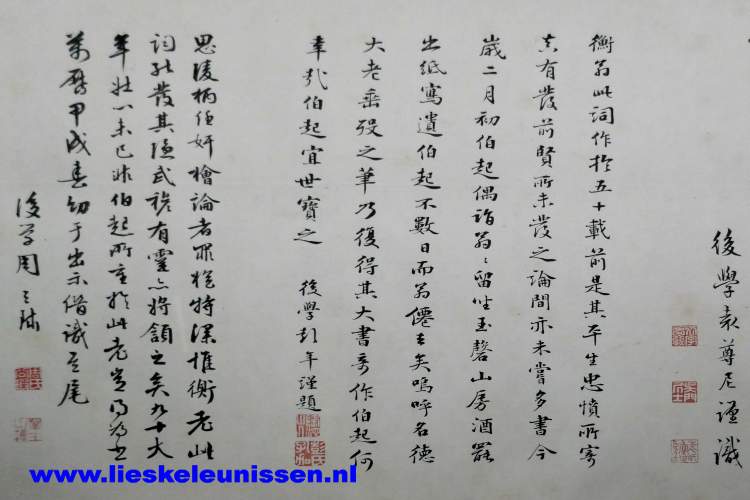 後學袁尊尼謹識
衡翁此詞作於五十載前是其平生忠憤所寄
真有發前賢所未發之論間亦未嘗多書今
歲二月初伯起偶詣翁〻留坐玉磬山房酒罷
出紙寫遺伯起不數日而翁僊去矣嗚呼名德
大老垂歿之筆乃復得其大書奇作伯起何
幸哉伯起宜世寶之 後學彭年謹題
思陵柄任奸檜論者罪檜特深惟衡老此
詞能發其隱武穆有靈亦將頷之矣九十大
年壯心未已非伯起所重於此老
萬曆甲戌春幼于出示借識其尾
後學周天球
www.lieskeleunissen.nl